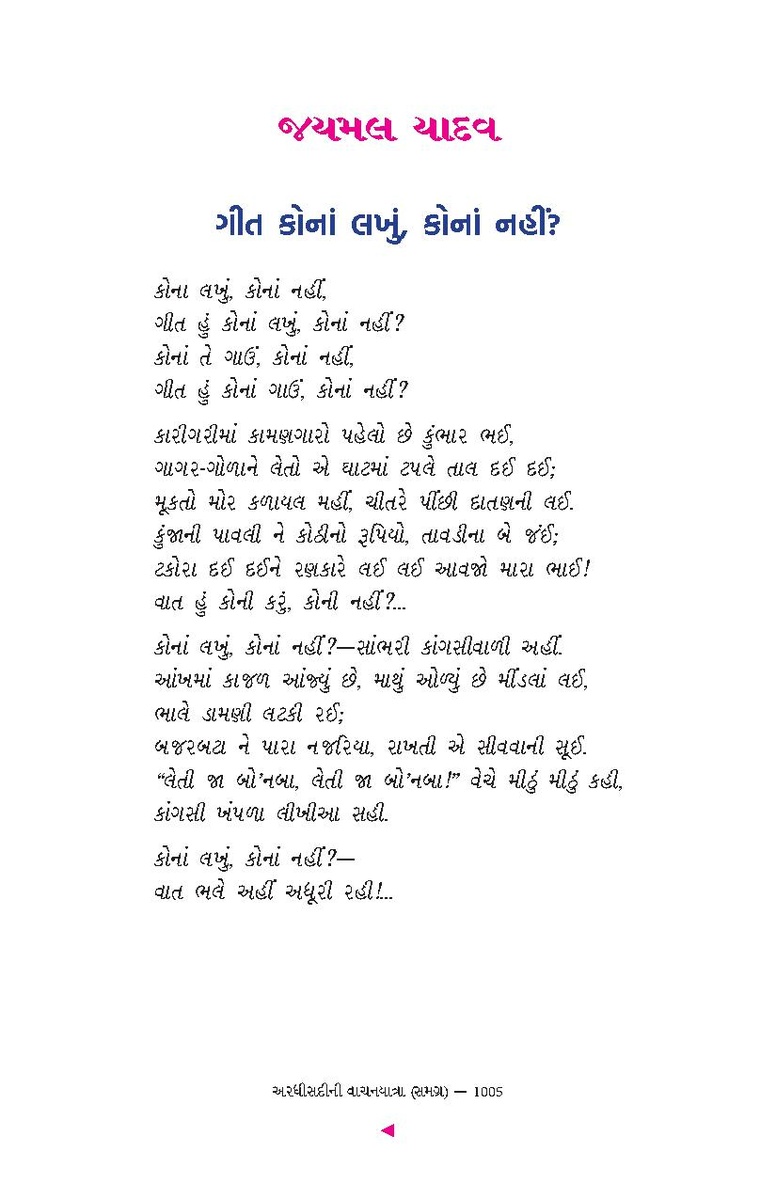 જયમલ યાદવ
ગીત કોનાં લખું, કોનાં નહીં?
કોના લખું, કોનાં નહીં,
ગીત હું કોનાં લખું, કોનાં નહીં?
કોનાં તે ગાઉં, કોનાં નહીં,
ગીત હું કોનાં ગાઉં, કોનાં નહીં?
કારીગરીમાં કામણગારો પહેલો છે કુંભાર ભઈ,
ગાગર-ગોળાને લેતો એ ઘાટમાં ટપલે તાલ દઈ દઈ;
મૂકતો મોર કળાયલ મહીં, ચીતરે પીંછી દાતણની લઈ.
કુંજાની પાવલી ને કોઠીનો રૂપિયો, તાવડીના બે જંઈ;
ટકોરા દઈ દઈને રણકારે લઈ લઈ આવજો મારા ભાઈ!
વાત હું કોની કરું, કોની નહીં?...
કોનાં લખું, કોનાં નહીં?—સાંભરી કાંગસીવાળી અહીં.
આંખમાં કાજળ આંજ્યું છે, માથું ઓળ્યું છે મીંડલાં લઈ,
ભાલે ડામણી લટકી રઈ;
બજરબટા ને પારા નજરિયા, રાખતી એ સીવવાની સૂઈ.
“લેતી જા બો’નબા, લેતી જા બો’નબા!” વેચે મીઠું મીઠું કહી,
કાંગસી ખંપળા લીખીઆ સહી.
કોનાં લખું, કોનાં નહીં?—
વાત ભલે અહીં અધૂરી રહી!...
અરધીસદીની વાચનયાત્રા (સમગ્ર) — 1005